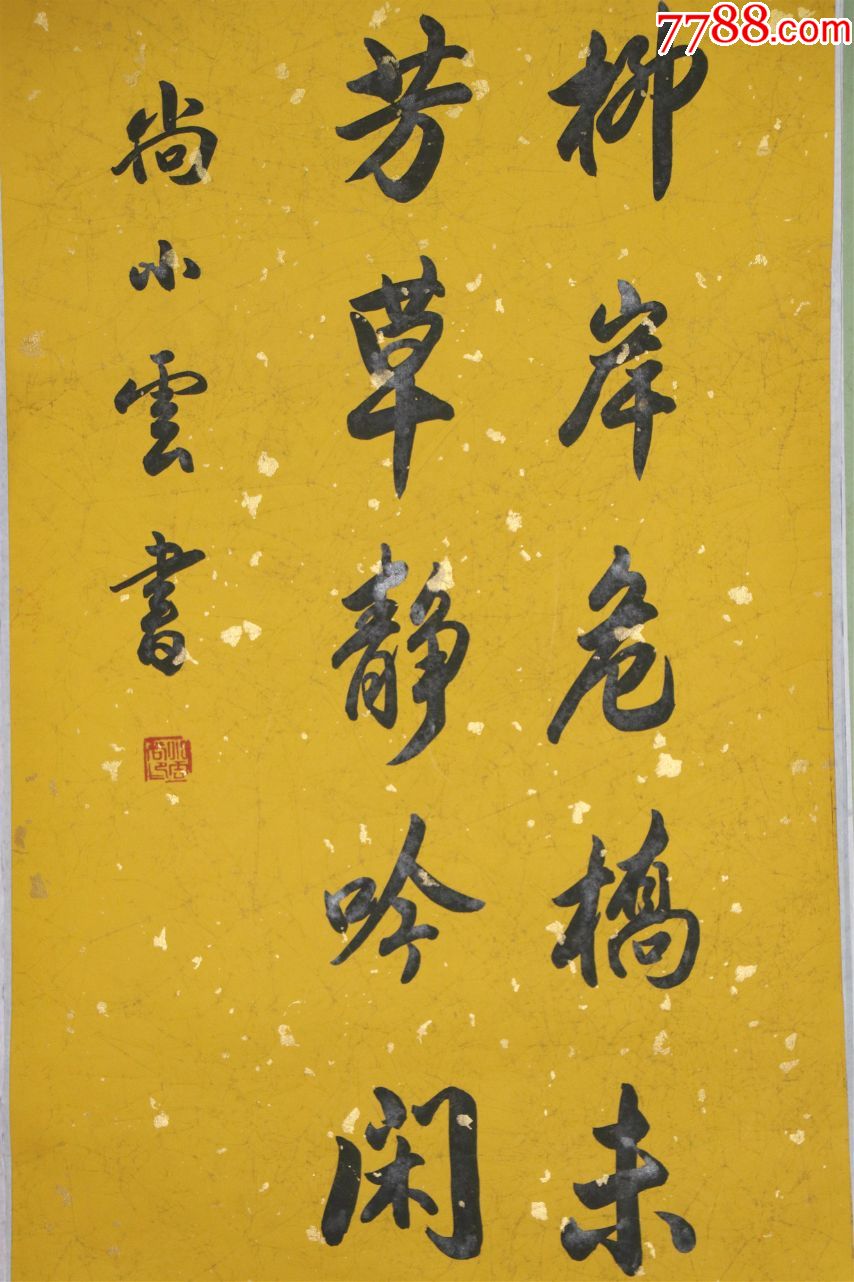 7788.com
柳岸危橋未
芳草靜吟闲
尚小雲書